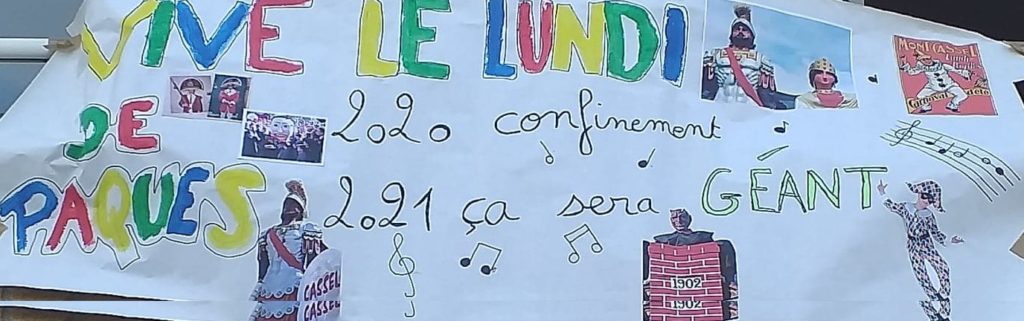 VIVE LE LUNDI
DE
PAQUES
2020 confinement
2021 ça sera GÉANT
MONT CASSEL
Carnaval d'été
CASSEL
CASSEL
1902
1902